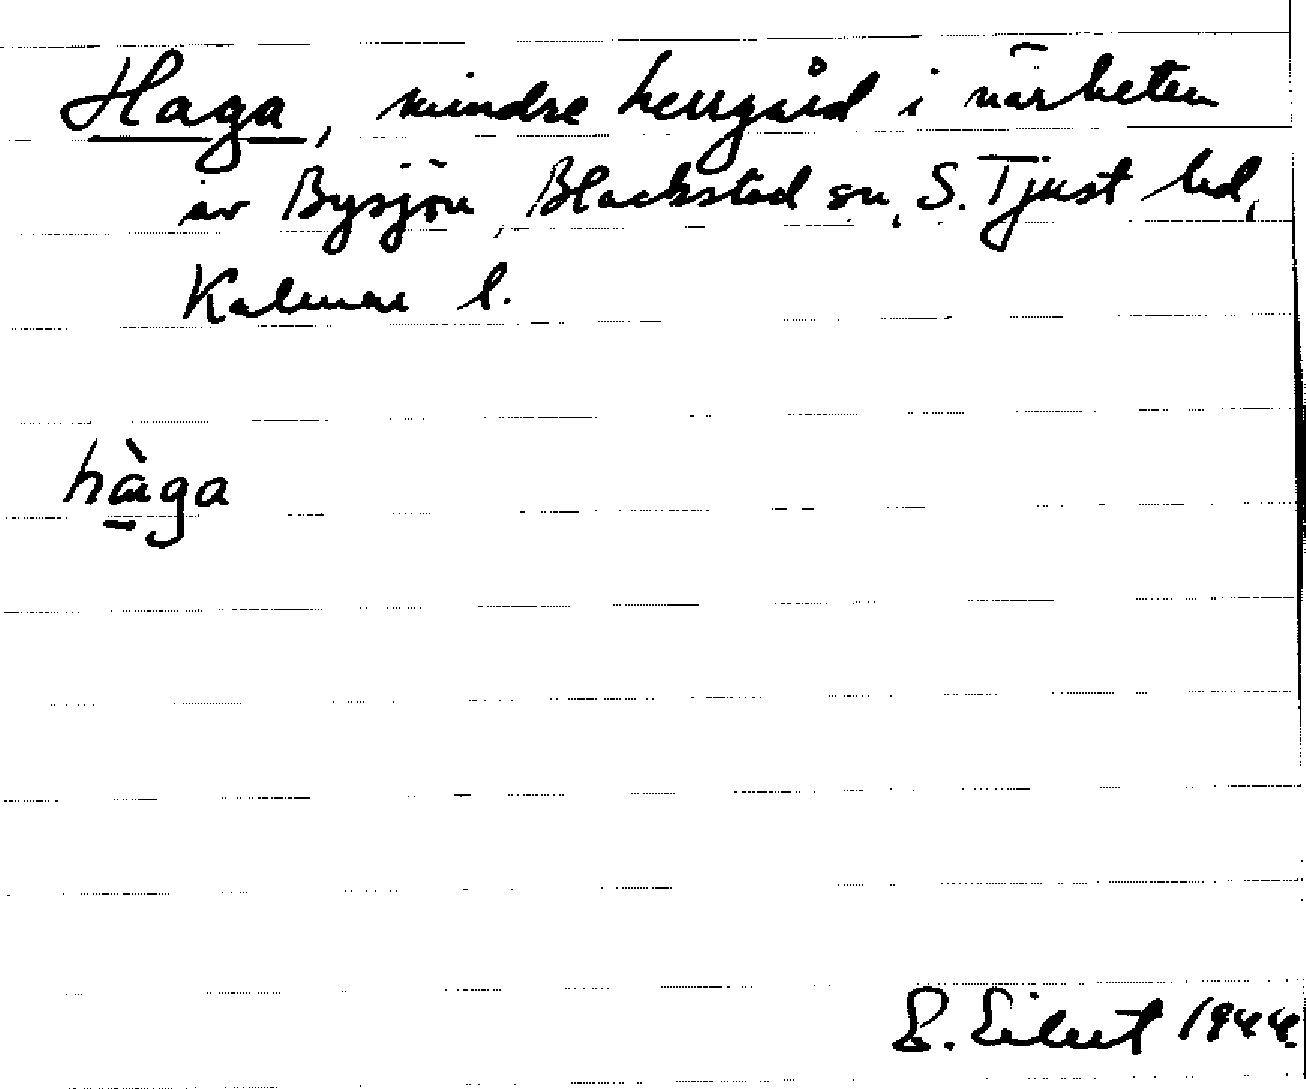 Haga, mindre herrgård i närheten
av Bysjön, Blackstad sn, S. Tjust hd,
Kalmar l.
hàga
E. Eibert 1944